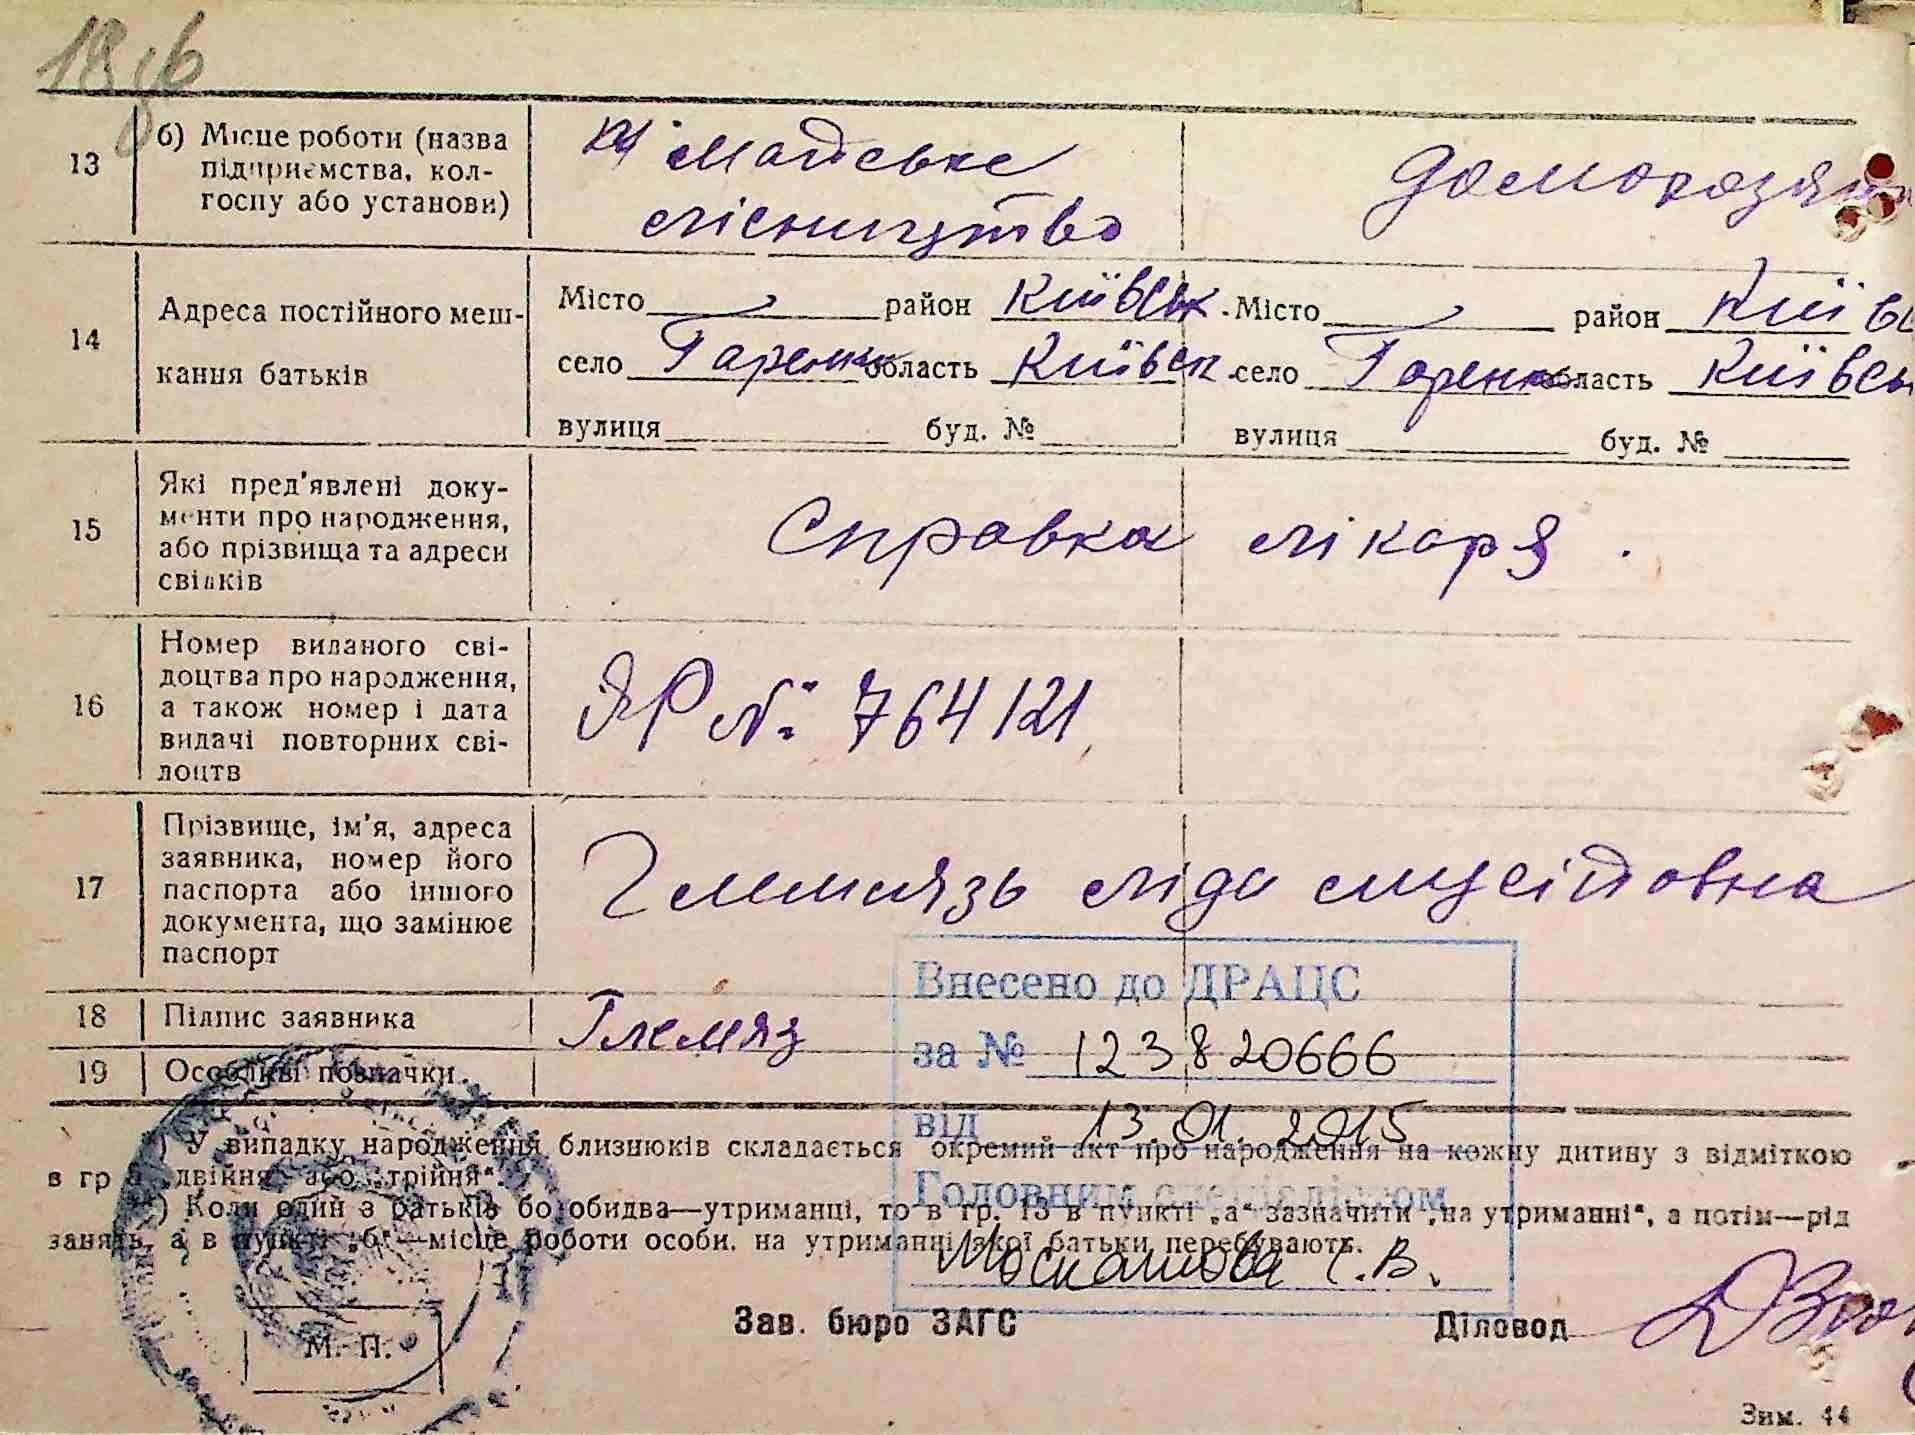 13 б) Місце роботи (назва підприємства, колгоспу або установи)
лісництво
14 Адреса постійного мешкання батьків
Місто район Київськ. Місто район Київсь
село Гаренка область Київськ. село Гаренка область Київсь
вулиця буд. № вулиця буд. №
15 Які пред'явлені документи про народження, або прізвища та адреси свідків
Справка лікаря.
16 Номер виданого свідоцтва про народження, а також номер і дата видачі повторних свідоцтв
ЯР № 764121
17 Прізвище, ім'я, адреса заявника, номер його паспорта або іншого документа, що замінює паспорт
Ліда
18 Підпис заявника
Глемяз
19 Особливі позначки
Внесено до ДРАЦС
за № 123820666
від 13.01.2015
Головним спеціалістом
) У випадку народження близнюків складається окремий акт про народження на кожну дитину з відміткою
в гр двійня" або „трійня".
) Коли один з батьків бо обидва—утриманці, то в гр. 13 в пункті „а" зазначити „на утриманні", а потім—рід
занять, а в пункті „б"—місце роботи особи, на утриманні якої батьки перебувають.
Зав. бюро ЗАГС Діловод
М. П.
Зим. 44